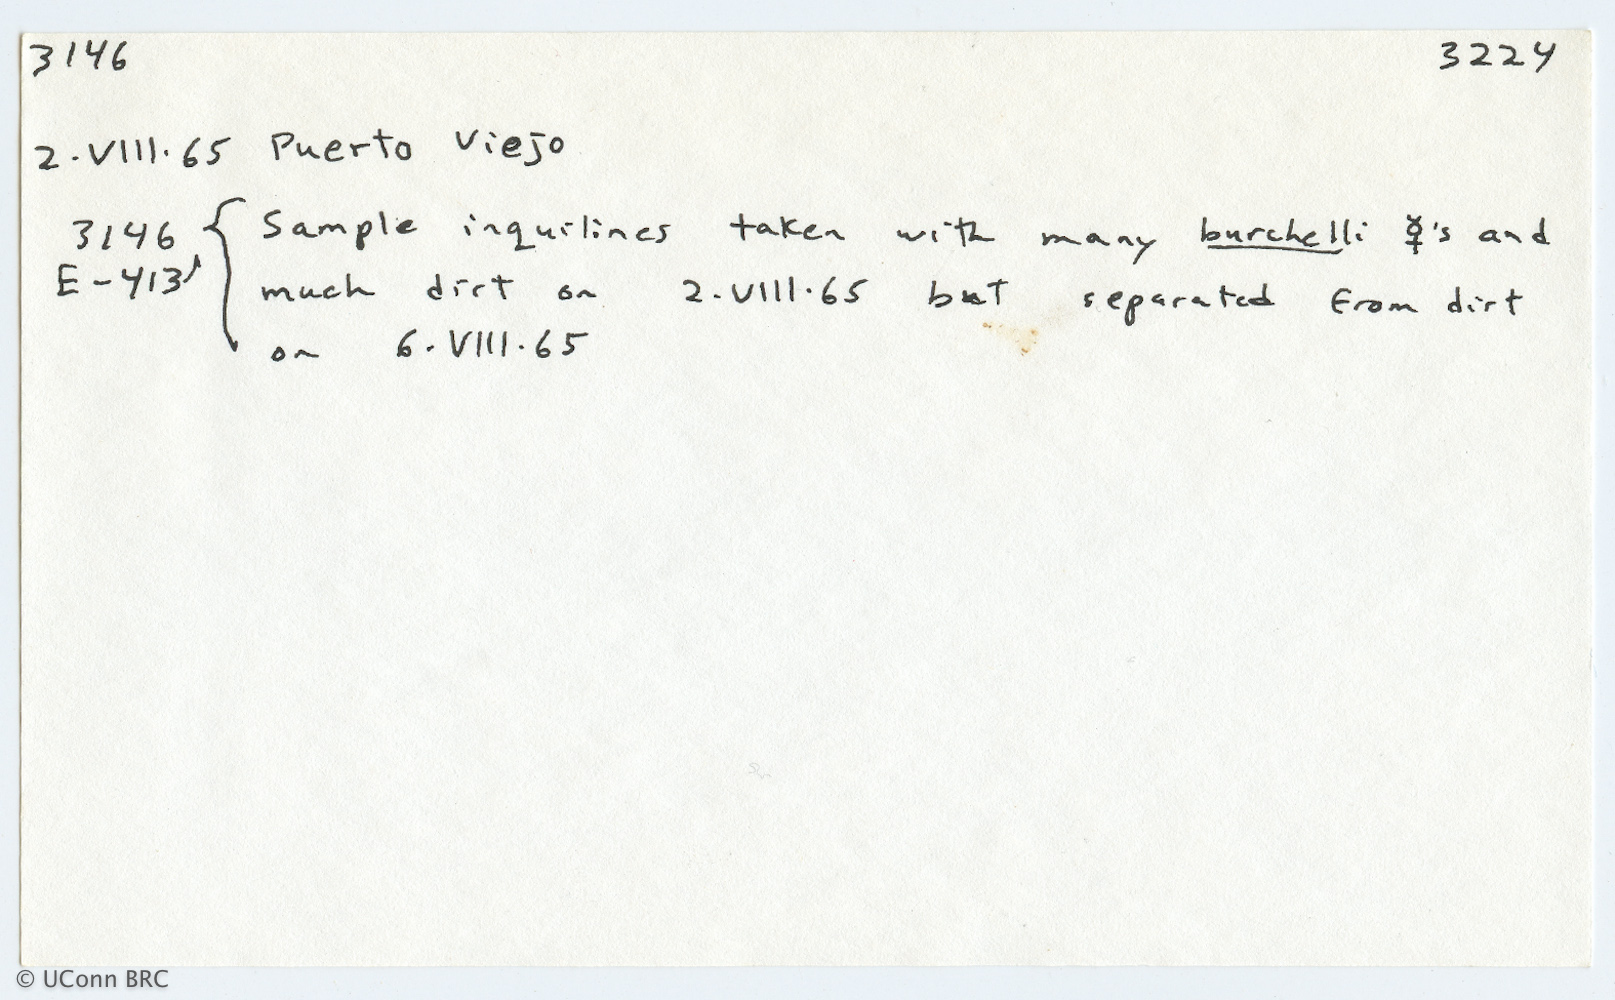 3146 3224
2.VIII.65 Puerto Viejo
3146 { Sample inquilines taken with many burchelli ☿'s and
E-413 much dirt on 2.VIII.65 but separated from dirt
on 6.VIII.65
© UConn BRC